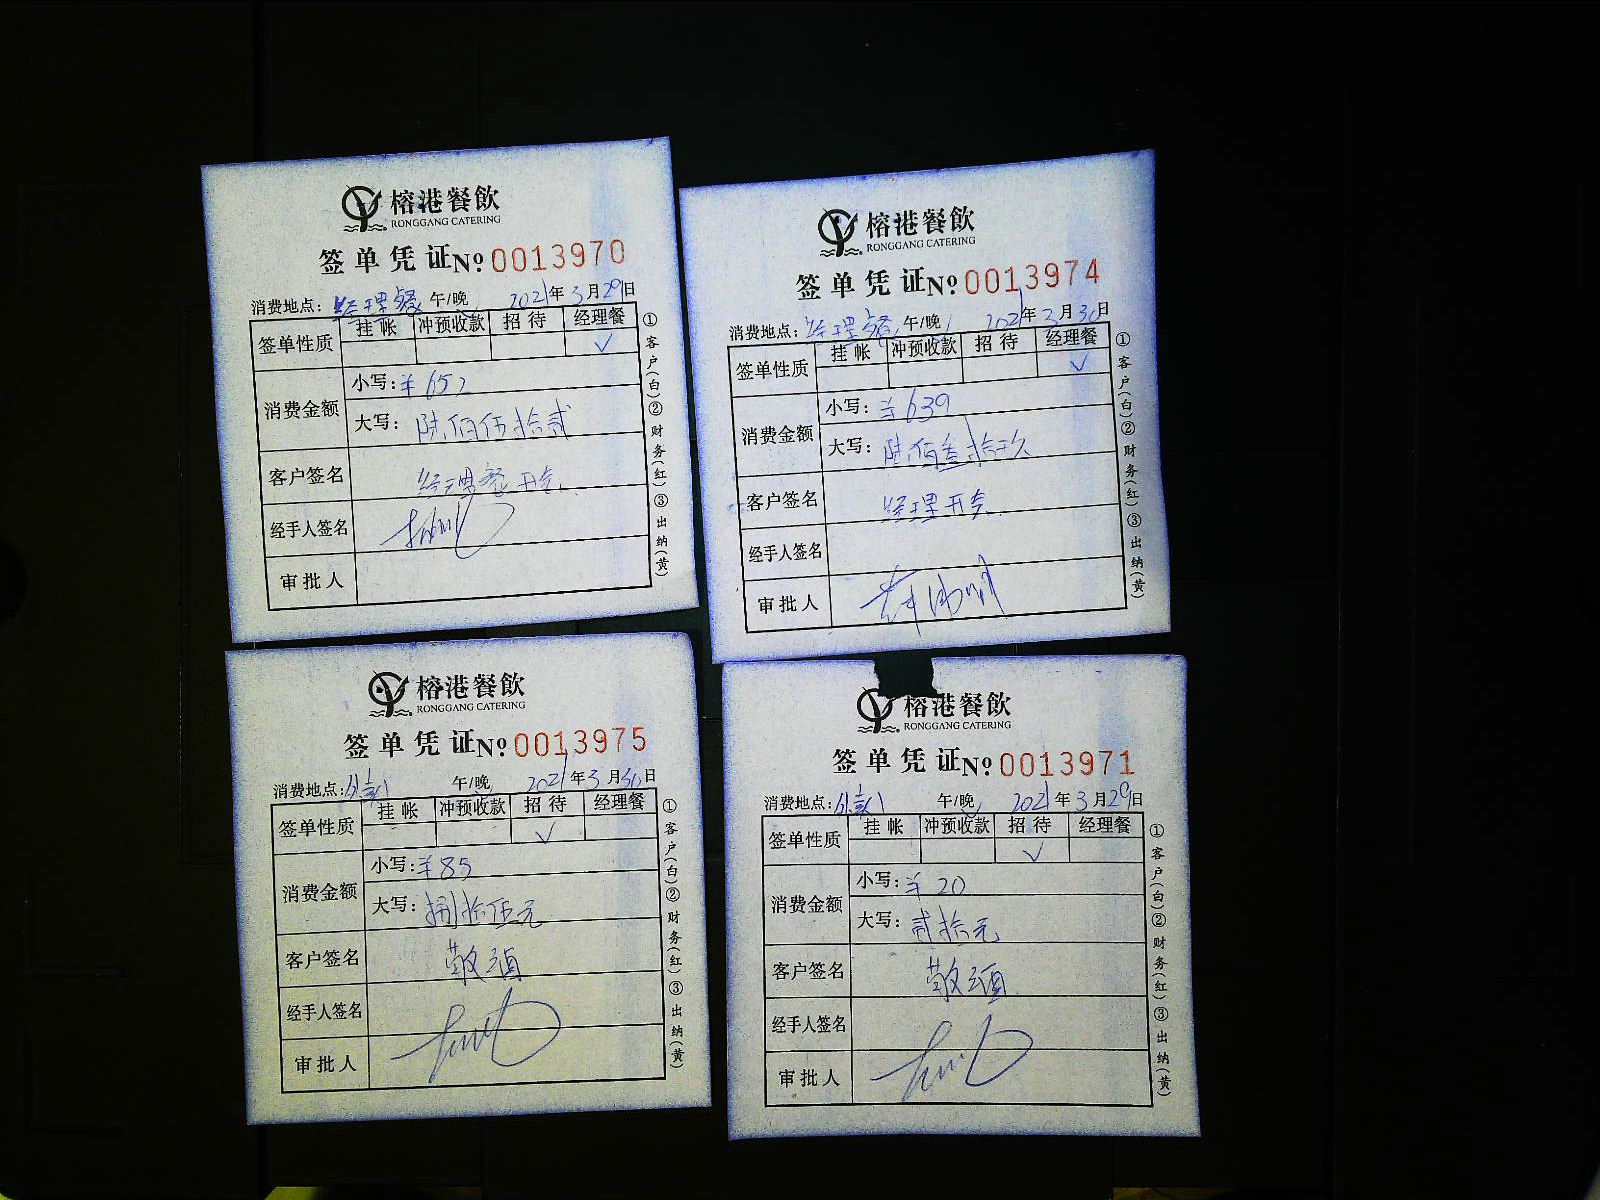 榕港餐飲
RONGGANG CATERING
签单凭证 № 0013970
消费地点：经理餐 午/晚 2021年3月29日
签单性质 挂帐 冲预收款 招待 经理餐
✓
消费金额
小写：¥652
大写：陆佰伍拾贰
客户签名 经理餐开会
经手人签名
审批人
①客户(白)②财务(红)③出纳(黄)
榕港餐飲
RONGGANG CATERING
签单凭证 № 0013974
消费地点：经理餐 午/晚 2021年3月30日
签单性质 挂帐 冲预收款 招待 经理餐
✓
消费金额
小写：¥639
大写：陆佰叁拾玖
客户签名 经理开会
经手人签名
审批人
①客户(白)②财务(红)③出纳(黄)
榕港餐飲
RONGGANG CATERING
签单凭证 № 0013975
消费地点： 午/晚 2021年3月30日
签单性质 挂帐 冲预收款 招待 经理餐
✓
消费金额
小写：¥85
大写：捌拾伍元
客户签名
经手人签名
审批人
①客户(白)②财务(红)③出纳(黄)
榕港餐飲
RONGGANG CATERING
签单凭证 № 0013971
消费地点： 午/晚 2021年3月29日
签单性质 挂帐 冲预收款 招待 经理餐
✓
消费金额
小写：¥20
大写：贰拾元
客户签名
经手人签名
审批人
①客户(白)②财务(红)③出纳(黄)